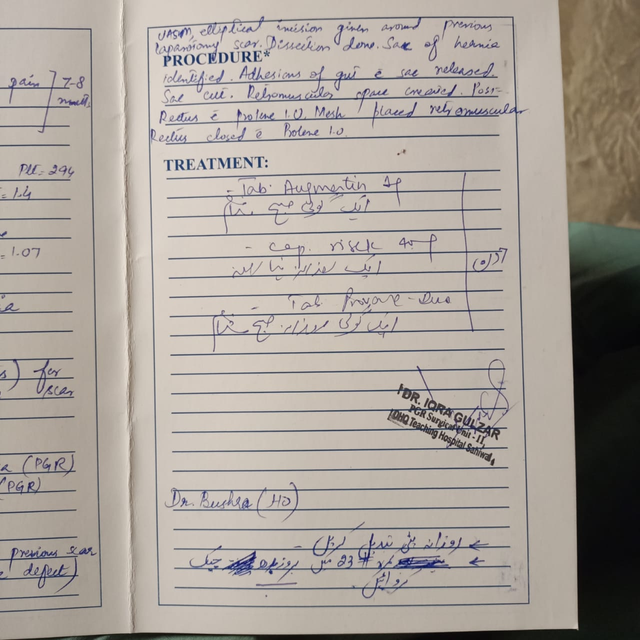 gain] 7-8
PLT= 294
= 1.4
= 1.07
s) for
scar
a (PGR)
(PGR)
previous scar
defect)
UASM, elliptical incision given around previous
laparotomy scar. Dissection done. Sac of hernia
PROCEDURE*
identified. Adhesions of gut c̄ sac released.
Sac cut. Retromuscular space created. Post-
Rectus c̄ Prolene 1.0. Mesh placed retromuscular
Rectus closed c̄ Prolene 1.0
TREATMENT:
- Tab. Augmentin
ایک گولی صبح شام
- Cap. risek
ایک روزانہ
- Tab Provare-Duo
ایک گولی روزانہ صبح شام
DR. IQRA GULZAR
PGR Surgical Unit - II,
DHQ Teaching Hospital Sahiwal
Dr. Bushra (HO)
← روزانہ پٹی تبدیل کریں -
← # 23 میں بروز چیک
کروائیں